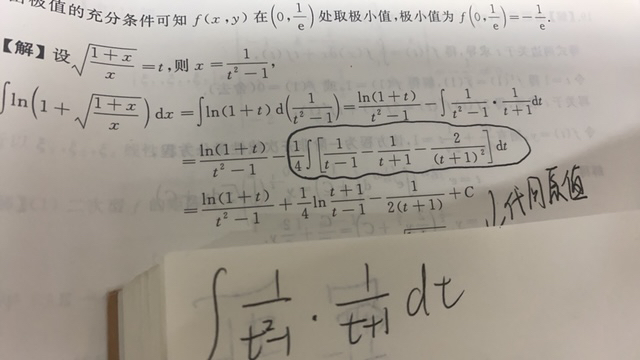 极值的充分条件可知 f(x,y) 在(0,1/e)处取极小值,极小值为 f(0,1/e)=-1/e.
【解】设√((1+x)/x)=t,则 x=1/(t²-1),
∫ln(1+√((1+x)/x))dx=∫ln(1+t)d(1/(t²-1))=ln(1+t)/(t²-1)-∫1/(t²-1)·1/(t+1)dt
=ln(1+t)/(t²-1)-1/4∫[1/(t-1)-1/(t+1)-2/(t+1)²]dt
=ln(1+t)/(t²-1)+1/4ln(t+1)/(t-1)-1/(2(t+1))+C
代回原值
∫1/(t²-1)·1/(t+1)dt